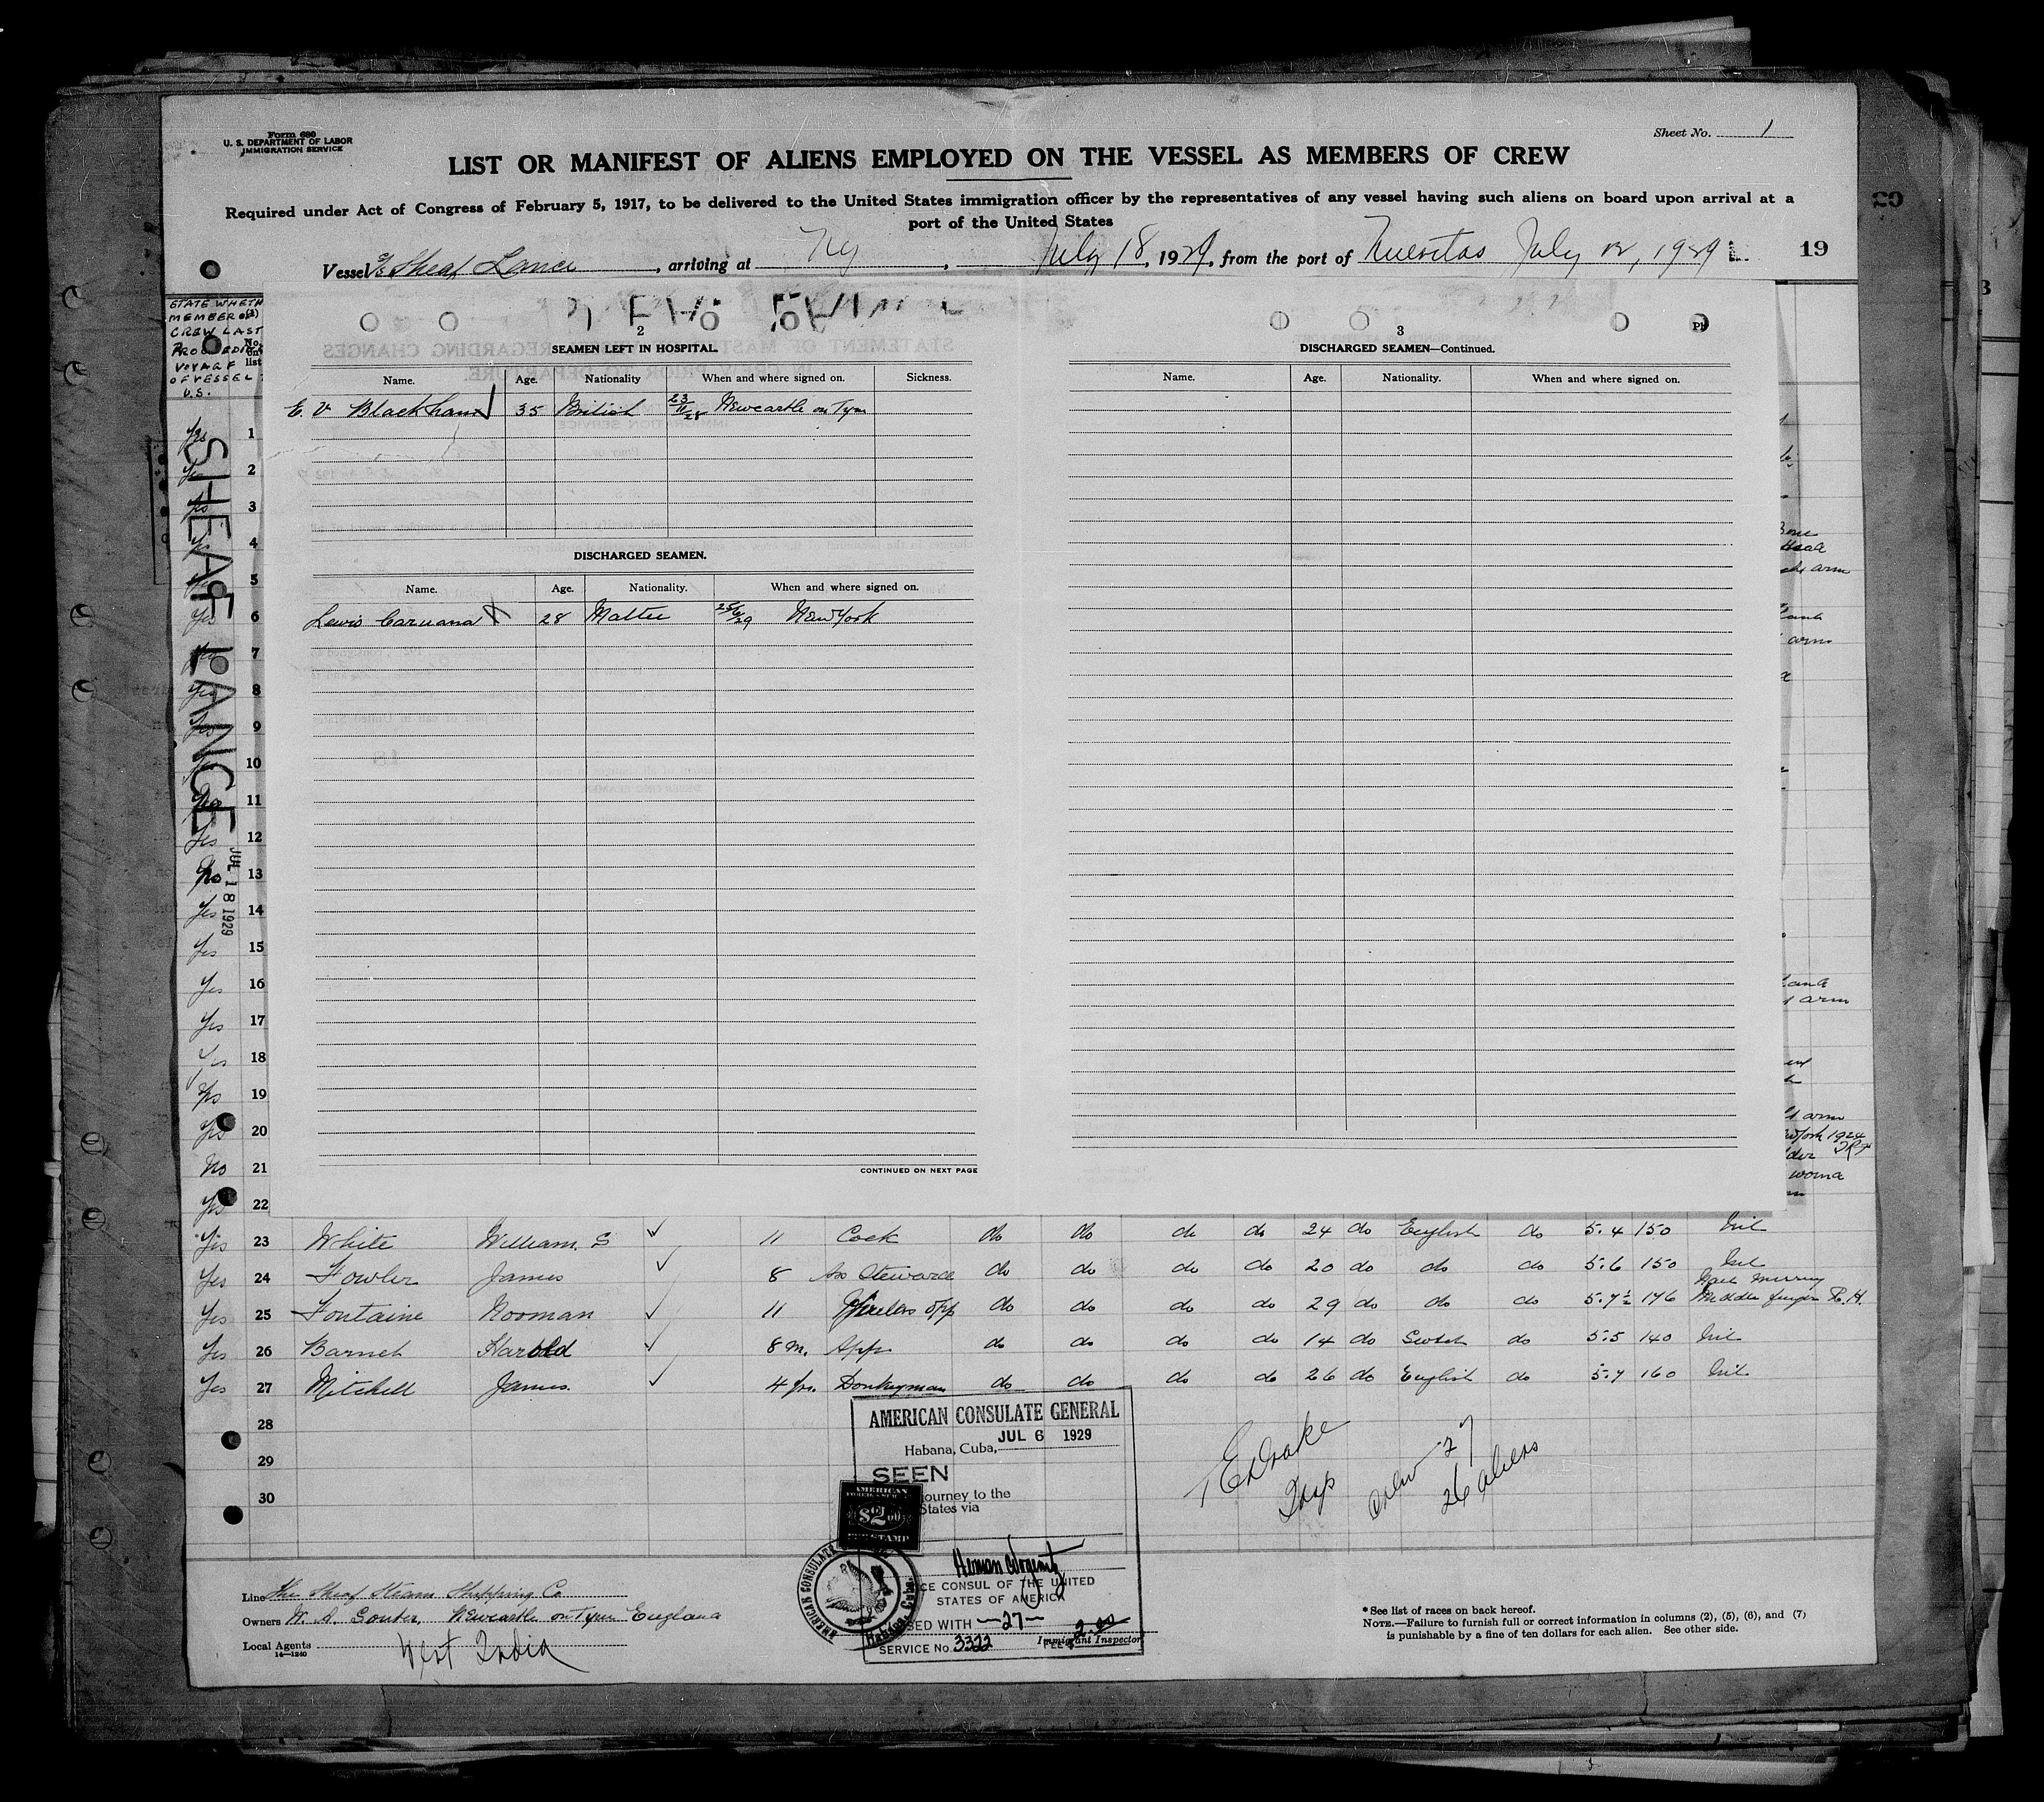 Form 680
U. S. DEPARTMENT OF LABOR
IMMIGRATION SERVICE
Sheet No. 1
LIST OR MANIFEST OF ALIENS EMPLOYED ON THE VESSEL AS MEMBERS OF CREW
Required under Act of Congress of February 5, 1917, to be delivered to the United States immigration officer by the representatives of any vessel having such aliens on board upon arrival at a
port of the United States
Vessel S/S Sheaf Lance, arriving at Ny, July 18, 1929, from the port of Nuevitas July 12, 1929
19
STATE WHETH
MEMBER OF
CREW LAST
PROCEEDIN
VOYAGE
OF VESSEL
U.S.
No. on list
SHEAF LANCE
JUL 18 1929
2
SEAMEN LEFT IN HOSPITAL.
Name. Age. Nationality When and where signed on. Sickness.
E. V Blackham 35 British 23/11/28 Newcastle on Tyne
DISCHARGED SEAMEN.
Name. Age. Nationality. When and where signed on.
Lewis Caruana 28 Maltee 25/6/29 New York
CONTINUED ON NEXT PAGE
3
DISCHARGED SEAMEN—Continued.
Name. Age. Nationality. When and where signed on.
Yes 1
Yes 2
Yes 3
Yes 4
Yes 5
Yes 6
Yes 7
Yes 8
Yes 9
Yes 10
11
Yes 12
13
Yes 14
Yes 15
Yes 16
Yes 17
Yes 18
Yes 19
Yes 20
No 21
Yes 22
Yes 23 White William. S 11 Cook do do do do 24 do English do 5.4 150 Nil
Yes 24 Fowler James 8 Ass Steward do do do do 20 do do do 5.6 150 Nil
Yes 25 Fontaine Norman 11 Wireless Opp do do do do 29 do do do 5.7½ 176 Middle finger R. H.
Yes 26 Barnet Harold 8 M. App. do do do do 14 do Scotch do 5.5 140 Nil
Yes 27 Mitchell James. 4 yrs. Donkeyman do do do do 26 do English do 5.7 160 Nil
28
29
30
AMERICAN CONSULATE GENERAL
JUL 6 1929
Habana, Cuba,
SEEN
journey to the
States via
AMERICAN
$2.00
STAMP
AMERICAN CONSULATE
Habana, Cuba.
CE CONSUL OF THE UNITED
STATES OF AMERICA
SED WITH —27—
SERVICE No. 3322 FEE $ 2.00
Immigrant Inspector
E Drake
Crew 27
26 aliens
Line The Sheaf Steam Shipping Co
Owners W. A. Souter, Newcastle on Tyne England
Local Agents West India
14—1240
*See list of races on back hereof.
NOTE.—Failure to furnish full or correct information in columns (2), (5), (6), and (7)
is punishable by a fine of ten dollars for each alien. See other side.